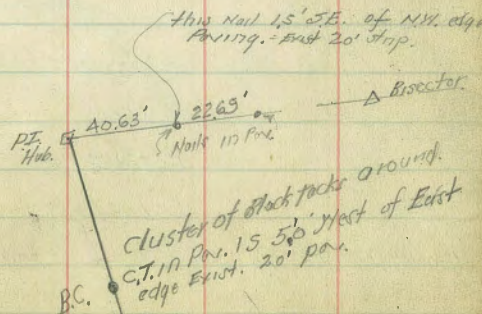 this Nail 1.5' S.E. of N.W. edge
Paving. = Exist 20' strip.
40.63'
22.69'
Bisector.
P.I.
Hub.
Nails in Pav.
Cluster of black tacks around.
C.T. in Pav. IS 5.0' West of East
edge Exist. 20' pav.
B.C.